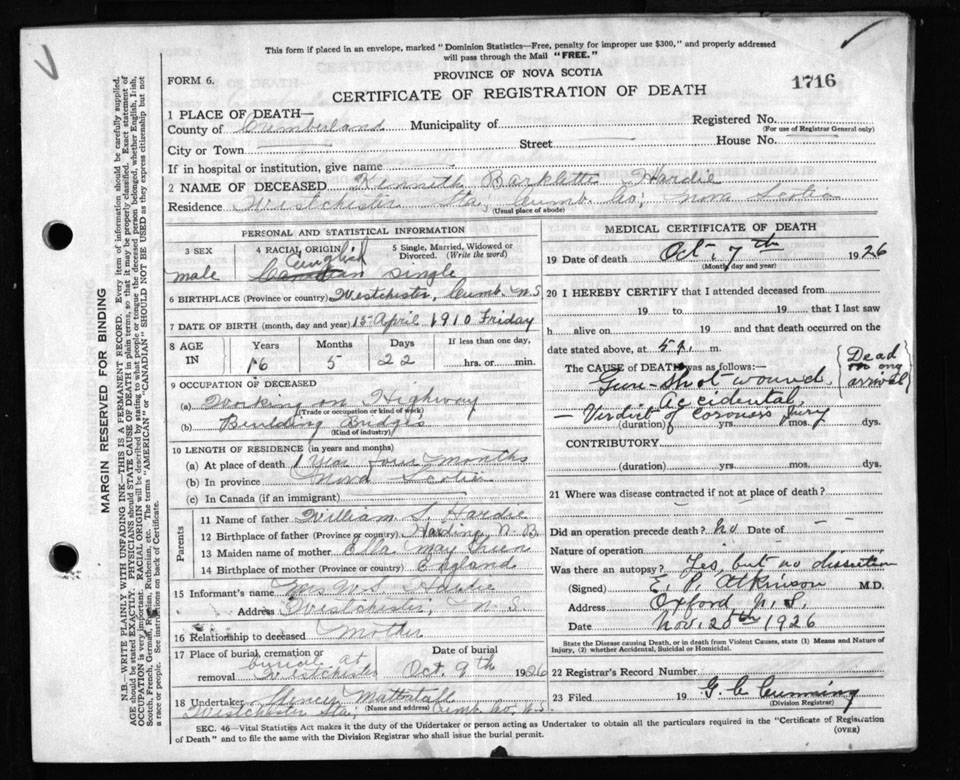 This form if placed in an envelope, marked "Dominion Statistics—Free, penalty for improper use $300," and properly addressed
will pass through the Mail "FREE."
PROVINCE OF NOVA SCOTIA
FORM 6.
CERTIFICATE OF REGISTRATION OF DEATH
1716
1 PLACE OF DEATH—
County of Cumberland Municipality of
Registered No.
(For use of Registrar General only)
City or Town Street House No.
If in hospital or institution, give name
2 NAME OF DECEASED Kenneth Barklette Hardie
Residence Westchester Sta, Cumb. Co, Nova Scotia
(Usual place of abode)
PERSONAL AND STATISTICAL INFORMATION
3 SEX 4 RACIAL ORIGIN 5 Single, Married, Widowed or Divorced. (Write the word)
English
male Canadian Single
6 BIRTHPLACE (Province or country) Westchester, Cumb. N.S
7 DATE OF BIRTH (month, day and year) 15 April 1910 Friday
8 AGE IN Years Months Days If less than one day,
16 5 22 hrs. or min.
9 OCCUPATION OF DECEASED
(a) Working on Highway
(Trade or occupation or kind of work)
(b) Building Bridges
(Kind of industry)
10 LENGTH OF RESIDENCE (in years and months)
(a) At place of death 1 Year four months
(b) In province Nova Scotia
(c) In Canada (if an immigrant)
Parents
11 Name of father William S. Hardie
12 Birthplace of father (Province or country) Harding N.B.
13 Maiden name of mother Ella May Green
14 Birthplace of mother (Province or country) England
15 Informant's name Mrs W.S. Hardie
Address Westchester, N.S.
16 Relationship to deceased Mother
17 Place of burial, cremation or removal Date of burial
burial at Westchester Oct. 9th 1926
18 Undertaker Mattatall
(Name and address)
Westchester Sta, Cumb Co, N.S
MEDICAL CERTIFICATE OF DEATH
19 Date of death Oct. 7th 1926
(Month, day and year)
20 I HEREBY CERTIFY that I attended deceased from
19 to 19 that I last saw
h alive on 19 and that death occurred on the
date stated above, at 5 p. m.
The CAUSE of DEATH was as follows:—
Dead on my arrival
Gun-Shot wound
Accidental
— Verdict of coroners jury
(duration) yrs. mos. dys.
CONTRIBUTORY
(duration) yrs. mos. dys.
21 Where was disease contracted if not at place of death?
Did an operation precede death? no Date of — —
Nature of operation
Was there an autopsy? Yes, but no dissection
(Signed) E. P. Atkinson M.D.
Address Oxford N.S.
Date Nov. 20th 1926
State the Disease causing Death, or in death from Violent Causes, state (1) Means and Nature of
Injury, (2) whether Accidental, Suicidal or Homicidal.
22 Registrar's Record Number
23 Filed 19 G. C. Cunning
(Division Registrar)
SEC. 46—Vital Statistics Act makes it the duty of the Undertaker or person acting as Undertaker to obtain all the particulars required in the "Certificate of Registration
of Death" and to file the same with the Division Registrar who shall issue the burial permit.
(OVER)
MARGIN RESERVED FOR BINDING
N.B.—WRITE PLAINLY WITH UNFADING INK—THIS IS A PERMANENT RECORD. Every item of information should be carefully supplied.
AGE should be stated EXACTLY. PHYSICIANS should STATE CAUSE OF DEATH in plain terms, so that it may be properly classified. Exact statement of
OCCUPATION is very important. RACIAL ORIGIN will be described by stating to what people or tongue the deceased person belonged, whether English, Irish,
Scotch, French, German, Russian, Ruthenian, etc. The terms "AMERICAN" or "CANADIAN" SHOULD NOT BE USED as they express citizenship but not
a race or people. See instructions on back of Certificate.